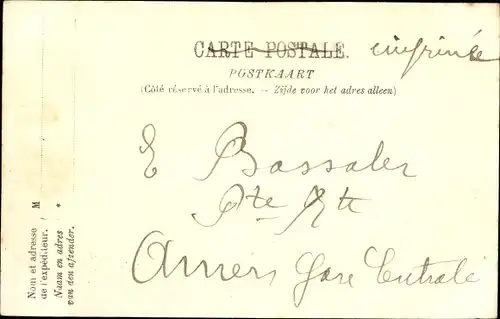 CARTE POSTALE. imprimée
POSTKAART
(Côté réservé à l'adresse. — Zijde voor het adres alleen)
E Bassaler
Pte Rte
Anvers Gare Centrale
Nom et adresse de l'expéditeur. / M
Naam en adres van den afzender. *